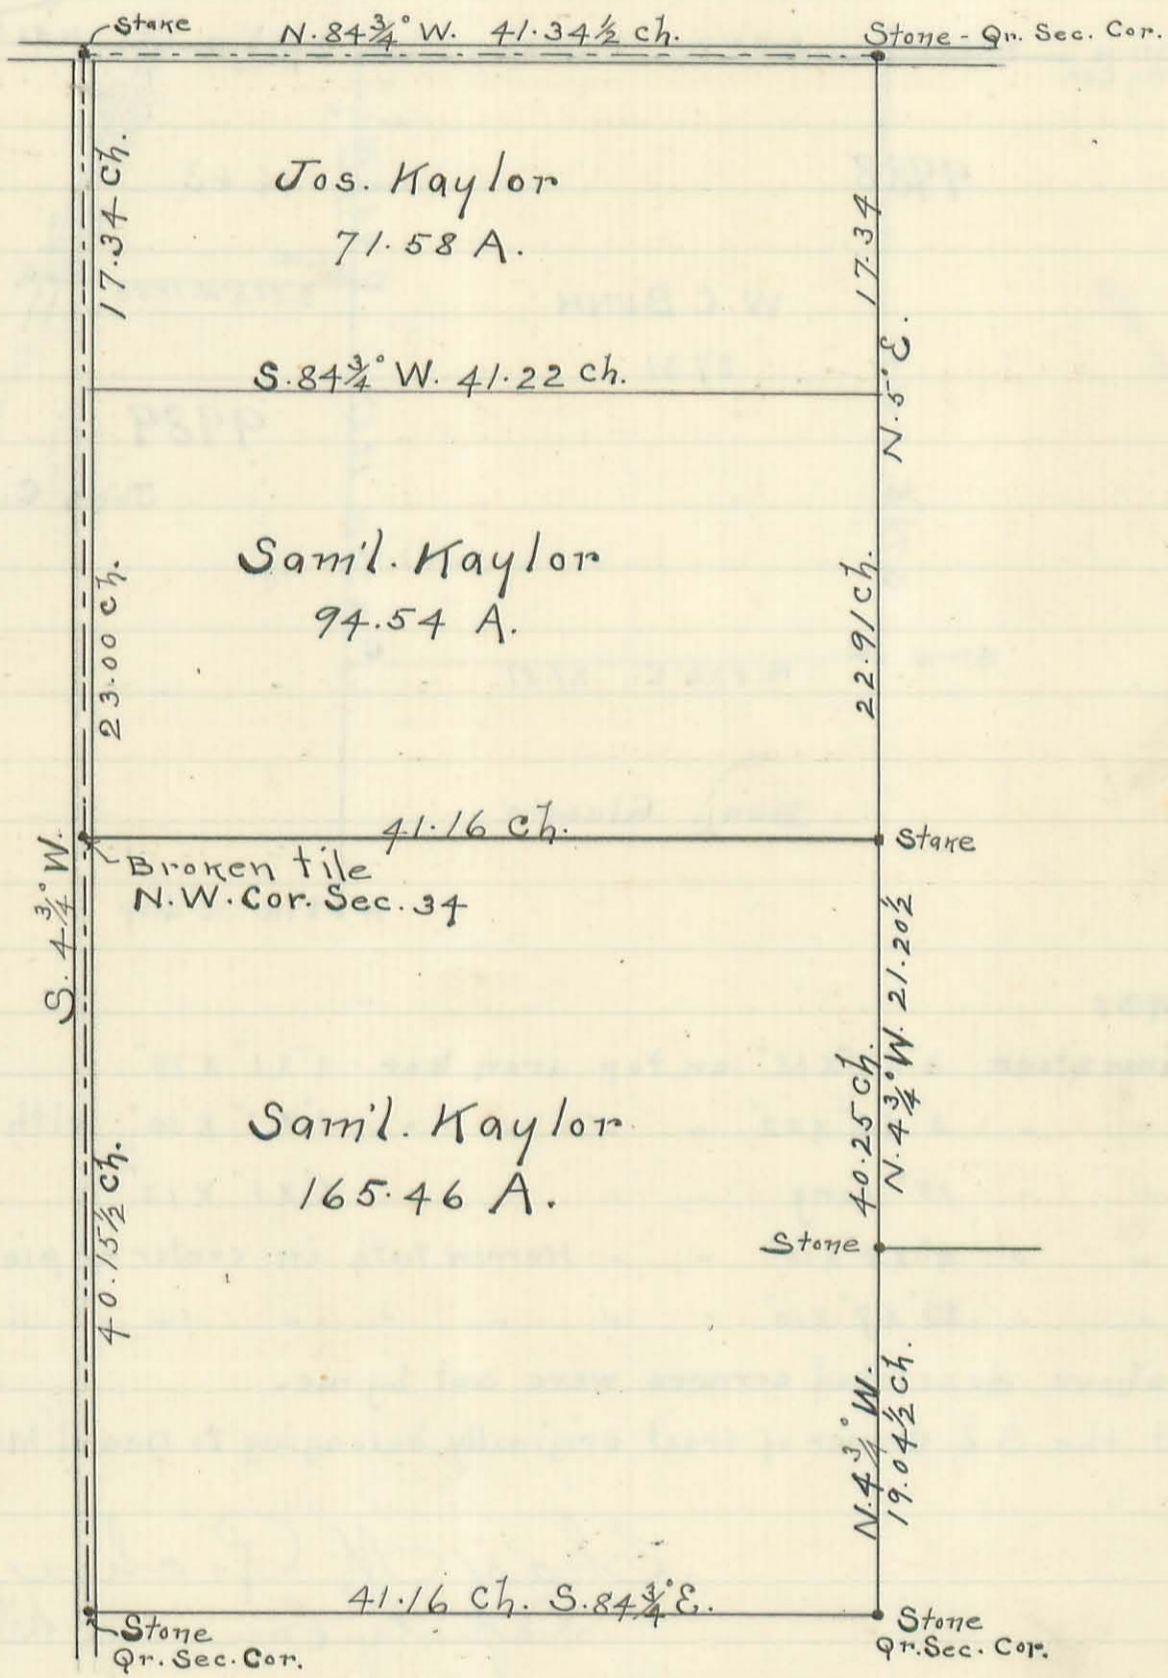 Stake
N. 84¾° W. 41.34½ ch.
Stone - Qr. Sec. Cor.
17.34 ch.
Jos. Kaylor
71.58 A.
17.34
S. 84¾° W. 41.22 ch.
N. 5° E.
23.00 ch.
Sam'l. Kaylor
94.54 A.
22.91 ch.
41.16 ch.
Stake
Broken tile
N.W. Cor. Sec. 34
S. 4¾° W.
N. 4¾° W. 21.20½
40.25 ch.
Sam'l. Kaylor
165.46 A.
40.15½ ch.
Stone
N. 4¾° W.
19.04½ ch.
41.16 ch. S. 84¾° E.
Stone
Qr. Sec. Cor.
Stone
Qr. Sec. Cor.